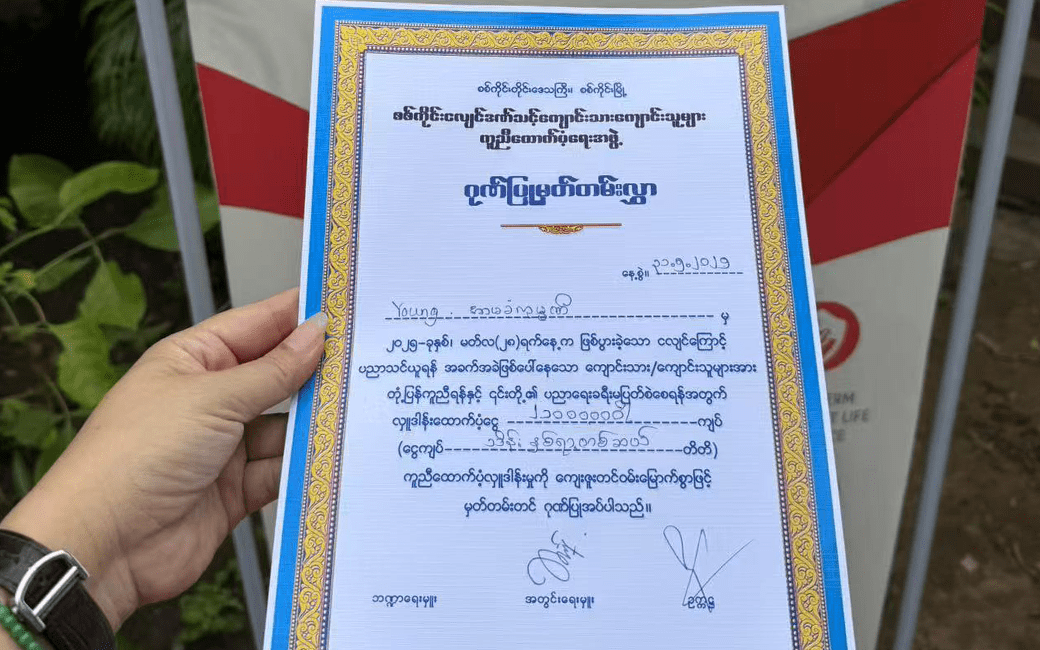 စစ်ကိုင်းတိုင်းဒေသကြီး၊ စစ်ကိုင်းမြို့
စစ်ကိုင်းငလျင်ဒဏ်သင့်ကျောင်းသားကျောင်းသူများ
ကူညီထောက်ပံ့ရေးအဖွဲ့
ဂုဏ်ပြုမှတ်တမ်းလွှာ
နေ့စွဲ။ ၃၁.၅.၂၀၂၅
Young မှ
၂၀၂၅-ခုနှစ်၊ မတ်လ(၂၈)ရက်နေ့က ဖြစ်ပွားခဲ့သော ငလျင်ကြောင့်
ပညာသင်ယူရန် အခက်အခဲဖြစ်ပေါ်နေသော ကျောင်းသား/ကျောင်းသူများအား
တုံ့ပြန်ကူညီရန်နှင့် ၎င်းတို့၏ ပညာရေးခရီးမပြတ်စဲစေရန်အတွက်
လှူဒါန်းထောက်ပံ့ငွေ ကျပ်
(ငွေကျပ် သိန်း နှစ်ရာ့တစ်ဆယ် တိတိ)
ကူညီထောက်ပံ့လှူဒါန်းမှုကို ကျေးဇူးတင်ဝမ်းမြောက်စွာဖြင့်
မှတ်တမ်းတင် ဂုဏ်ပြုအပ်ပါသည်။
ဘဏ္ဍာရေးမှူး အတွင်းရေးမှူး ဥက္ကဋ္ဌ
LIFE